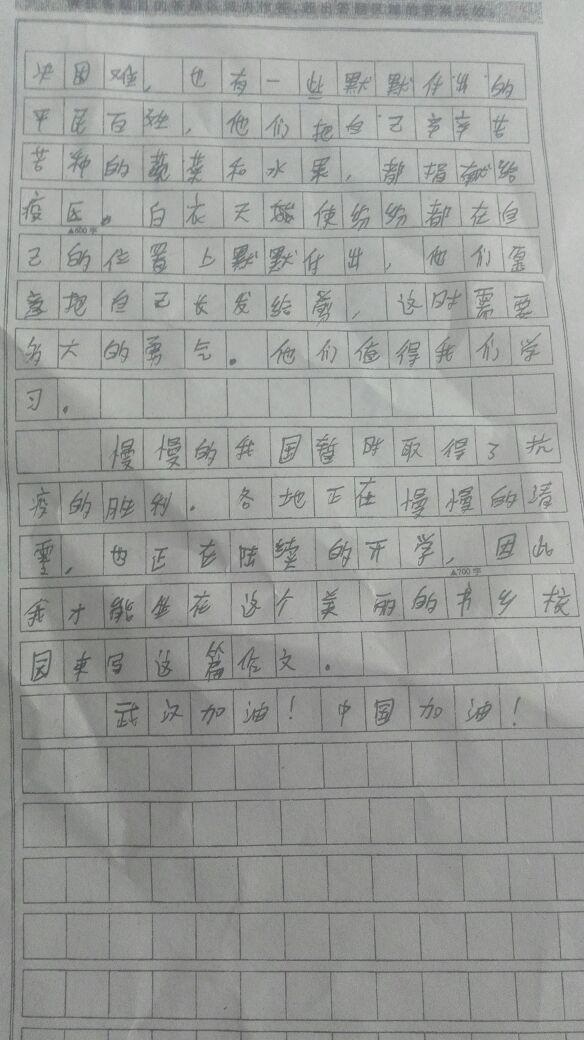 请在各题目的答题区域内作答,超出答题区域的答案无效
决困难，也有一些默默付出的
平民百姓，他们把自己辛辛苦
苦种的蔬菜和水果，都捐献给
疫区。白衣天使纷纷都在自
▲600字
己的位置上默默付出，他们愿
意把自己长发给剪，这时需要
多大的勇气。他们值得我们学
习。
慢慢的我国暂时取得了抗
疫的胜利。各地正在慢慢的清
零，也正在陆续的开学，因此
▲700字
我才能坐在这个美丽的书乡校
园来写这篇作文。
武汉加油！中国加油！